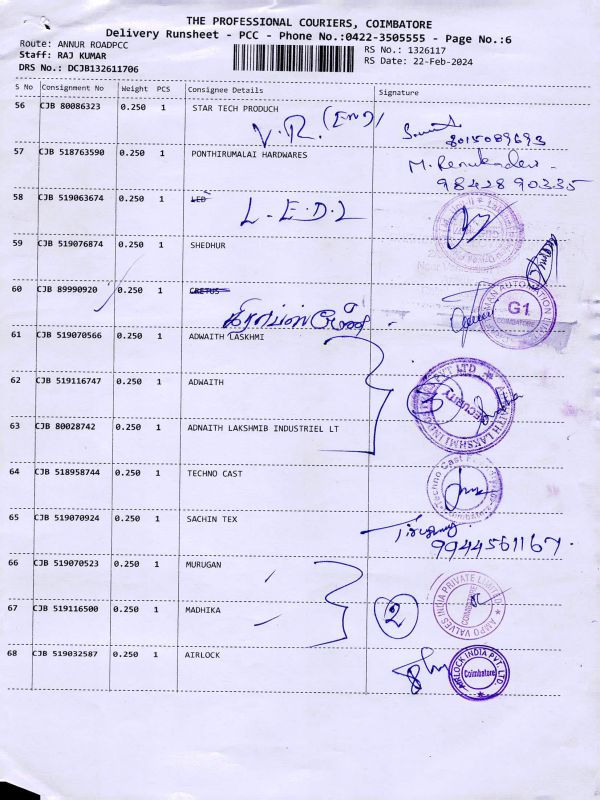 THE PROFESSIONAL COURIERS, COIMBATORE
Delivery Runsheet - PCC - Phone No.:0422-3505555 - Page No.:6
Route: ANNUR ROADPCC
RS No.: 1326117
Staff: RAJ KUMAR
RS Date: 22-Feb-2024
DRS No.: DCJB132611706
S No Consignment No Weight PCS Consignee Details Signature
56 CJB 80086323 0.250 1 STAR TECH PRODUCH
V.R.
8015089693
57 CJB 518763590 0.250 1 PONTHIRUMALAI HARDWARES
M. Renukadevi
98428 90335
58 CJB 519063674 0.250 1 LED
L.E.D.2
59 CJB 519076874 0.250 1 SHEDHUR
60 CJB 89990920 0.250 1 CRETUS
AUTOMATION
G1
COIMBATORE
61 CJB 519070566 0.250 1 ADWAITH LASKHMI
62 CJB 519116747 0.250 1 ADWAITH
LAKSHMI
PVT LTD
SECURITY
63 CJB 80028742 0.250 1 ADNAITH LAKSHMIB INDUSTRIEL LT
64 CJB 518958744 1 0.250 1 TECHNO CAST
Techno Cast
65 CJB 519070924 0.250 1 SACHIN TEX
9944561167.
66 CJB 519070523 0.250 1 MURUGAN
67 CJB 519116500 0.250 1 MADHIKA
2
AMPO VALVES INDIA PRIVATE LIMITED
68 CJB 519032587 0.250 1 AIRLOCK
AIRLOCK INDIA PVT. LTD
Coimbatore